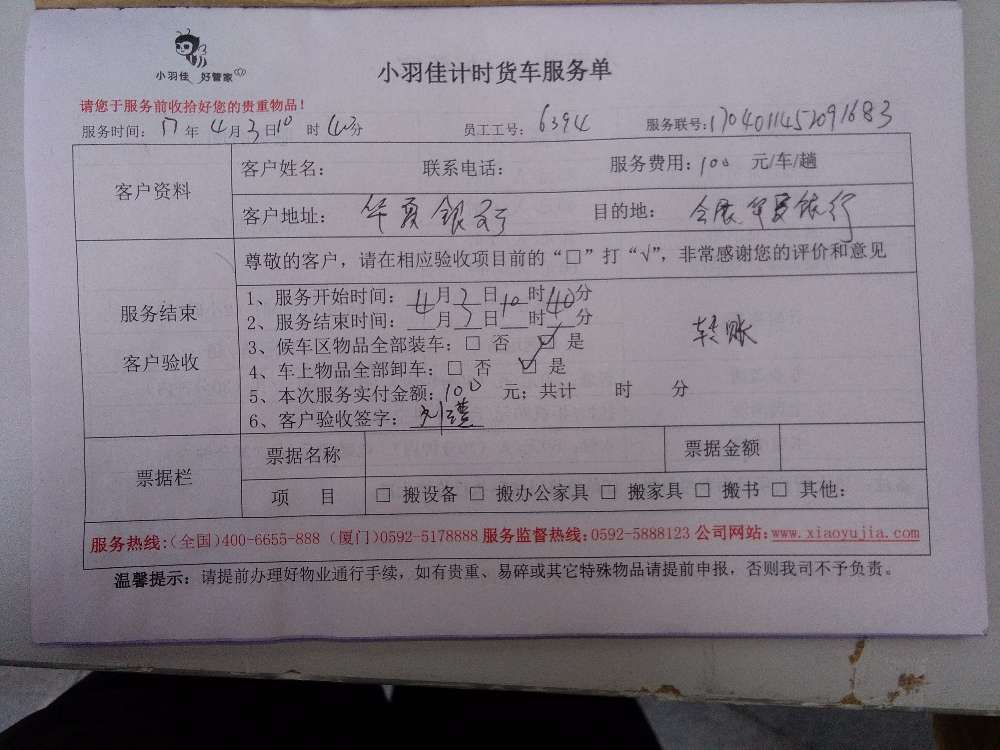 小羽佳 好管家
小羽佳计时货车服务单
请您于服务前收拾好您的贵重物品！
服务时间：17年4月3日10时40分 员工工号：6394 服务联号：1704011452091683
客户资料
客户姓名： 联系电话： 服务费用：100 元/车/趟
客户地址：华夏银行 目的地：会展华夏银行
服务结束
客户验收
尊敬的客户，请在相应验收项目前的“□”打“√”，非常感谢您的评价和意见
1、服务开始时间：4月3日10时40分
2、服务结束时间：__月3日__时__分
3、候车区物品全部装车：□ 否 ☑ 是
4、车上物品全部卸车：□ 否 ☑ 是
5、本次服务实付金额：100 元；共计 时 分
6、客户验收签字：刘
转账
票据栏
票据名称 票据金额
项 目 □ 搬设备 □ 搬办公家具 □ 搬家具 □ 搬书 □ 其他：
服务热线:(全国)400-6655-888 (厦门)0592-5178888 服务监督热线:0592-5888123 公司网站:www.xiaoyujia.com
温馨提示：请提前办理好物业通行手续，如有贵重、易碎或其它特殊物品请提前申报，否则我司不予负责。